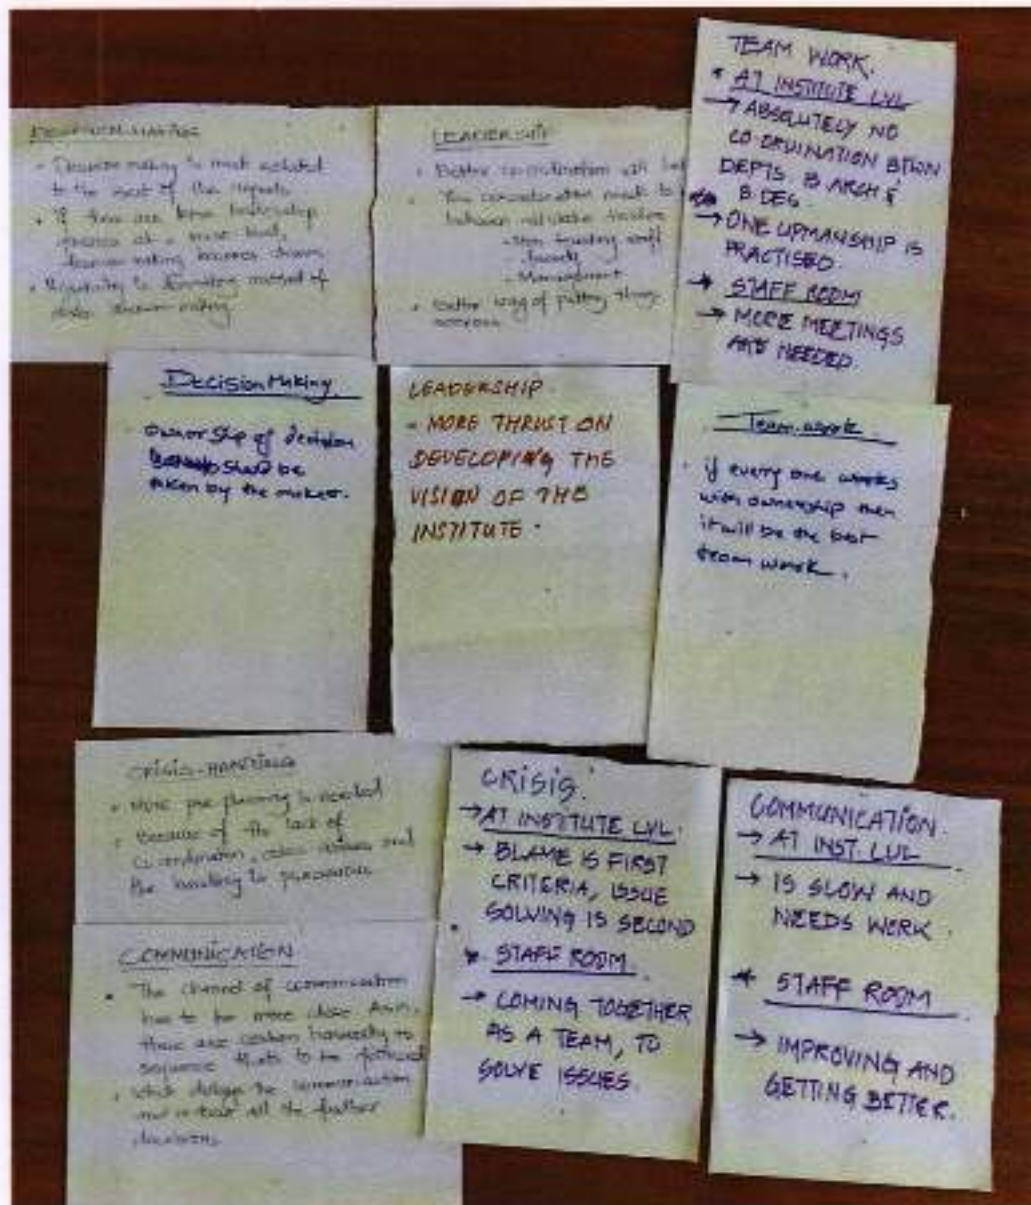 DECISION-MAKING
• Decision making is most
to the rest of the
• If there are
at a
decision making becomes
•
method of
decision making
LEADERSHIP
• Better co-ordination will
•
between
- Non teaching staff
- Faculty
- Management
• Better way of putting things
across
TEAM WORK.
* AT INSTITUTE LVL
→ ABSOLUTELY NO
CO ORDINATION BTWN
DEPTS. B ARCH &
B DES.
→ ONE UPMANSHIP IS
PRACTISED.
* STAFF ROOM
→ MORE MEETINGS
ARE NEEDED.
Decision Making
ownership of decision
should be
taken by the maker.
LEADERSHIP
- MORE THRUST ON
DEVELOPING THE
VISION OF THE
INSTITUTE.
Team-work
• if every one works
with ownership then
it will be the best
team work.
CRISIS-HANDLING
• More pre planning is needed
• Because of the lack of
co-ordination, crisis and
the handling is
COMMUNICATION
• The channel of communication
has to be more clear. As in,
there are certain hierarchy to
sequence that's to be followed
• which delays the communication
and all the further
decisions
CRISIS:
→ AT INSTITUTE LVL.
→ BLAME IS FIRST
CRITERIA, ISSUE
SOLVING IS SECOND
* STAFF ROOM.
→ COMING TOGETHER
AS A TEAM, TO
SOLVE ISSUES.
COMMUNICATION.
→ AT INST. LVL
→ IS SLOW AND
NEEDS WORK.
* STAFF ROOM
→ IMPROVING AND
GETTING BETTER.